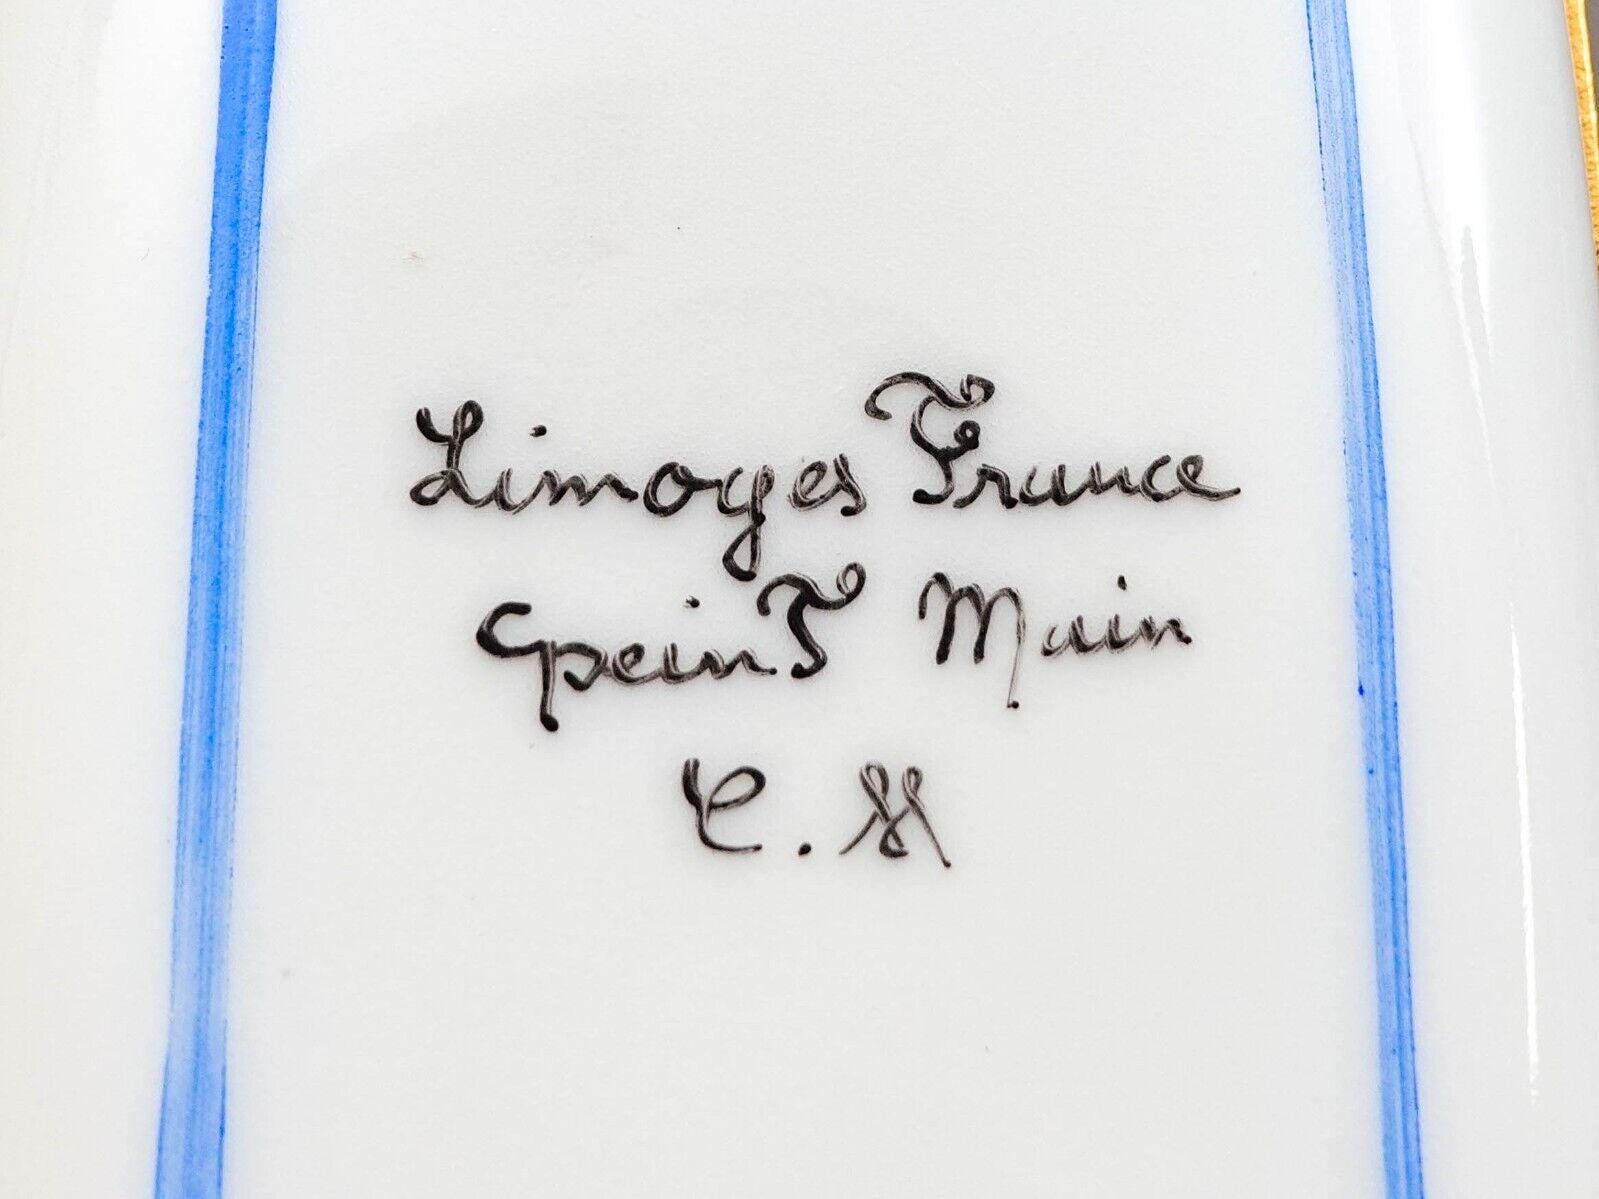 Limoges France
peinT Main
C. M